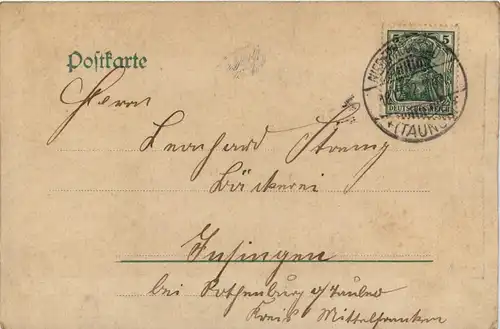 Postkarte
5 5
DEUTSCHES REICH
(TAUNUS)
Herrn
Leonhard
Bäckerei
Insingen
bei Rothenburg o/Tauber
Kreis Mittelfranken